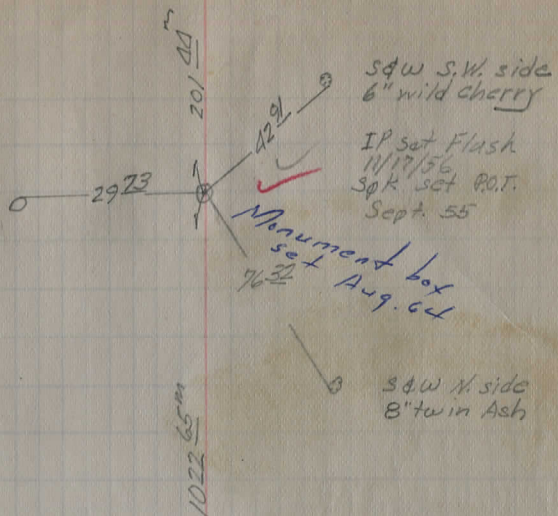 201 44 m
S&W S.W. side
6" wild cherry
42 91
IP set Flush
11/17/56
Spk set P.O.T.
Sept. 55
29 73
Monument box
set Aug. 64
76 32
S&W N. side
8" twin Ash
1022 65 m